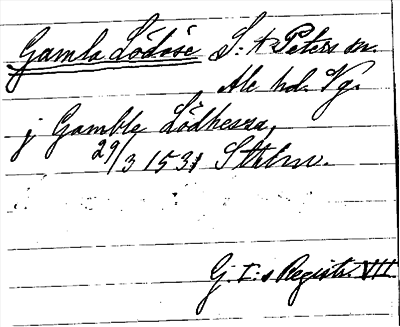 Gamla Lödöse S:t Peters sn.
Ale hd. Vg.
j Gamble Lödhessa,
29/3 1531 Sthlm.
G. I:s Registr. VII